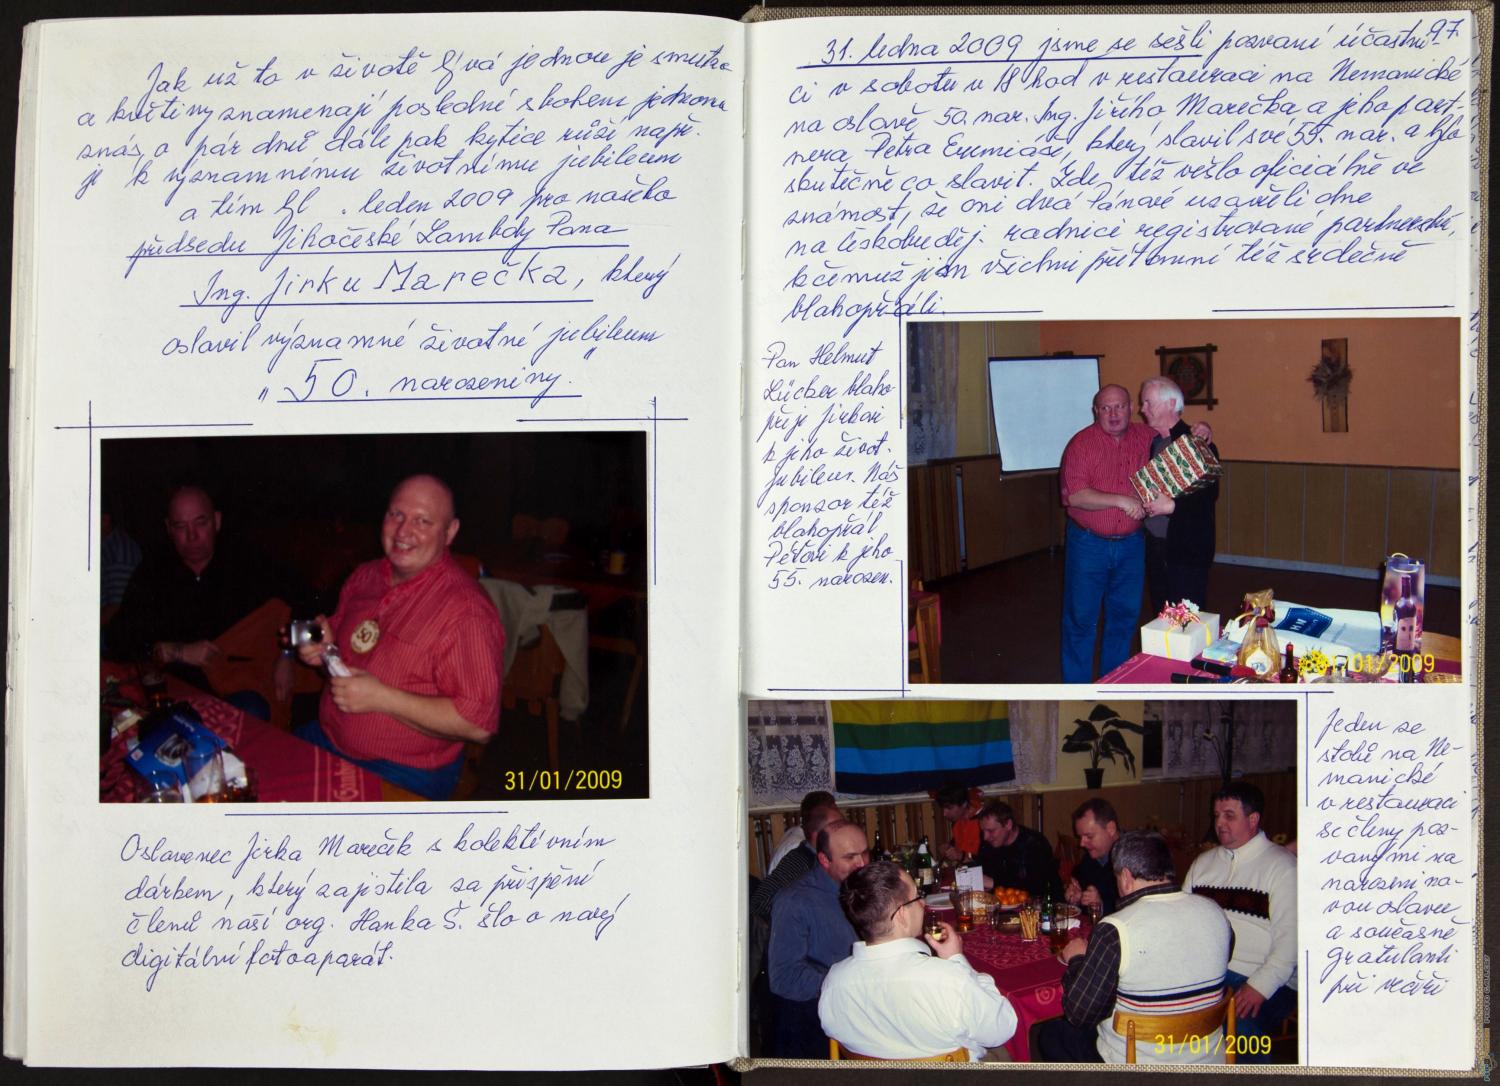 Jak už to v životě bývá jednou je smutno
a květiny znamenají poslední sbohem jednomu
z nás, o pár dnů dále pak kytice růží např.
je k významnému životnímu jubileum
a tím byl . leden 2009 pro našeho
předsedu Jihočeské Lambdy Pana
Ing. Jirku Marečka, který
oslavil významné životné jubileum
„50. narozeniny."
31/01/2009
Oslavenec Jirka Mareček s kolektévním
dárkem, který zajistila za přispění
členů naší org. Hanka Š. šlo o nový
digitální fotoaparát.
97
31. ledna 2009 jsme se sešli pozvaní účastní-
ci v sobotu v 18 hod v restauraci na Nemanické
na oslavě 50. nar. Ing. Jiřího Marečka a jeho part-
nera Petra Eremiáše, který slavil své 55. nar. a bylo
skutečně co slavit. Zde též vešlo oficiálně ve
známost, že oni dva Pánové uzavřeli dne
na Českobuděj. radnici registrované partnerství,
k čemuž jim všichni přítomní též srdečně
blahopřáli.
Pan Helmut
Lücker blaho-
přeje Jirkovi
k jeho život.
jubileu. Náš
sponzor též
blahopřál
Péťovi k jeho
55. narozen.
31/01/2009
Jeden ze
stolů na Ne-
manické
v restauraci
se členy poz-
vanými na
narozenino-
vou oslavu
a současně
gratulanti
při večeři
31/01/2009